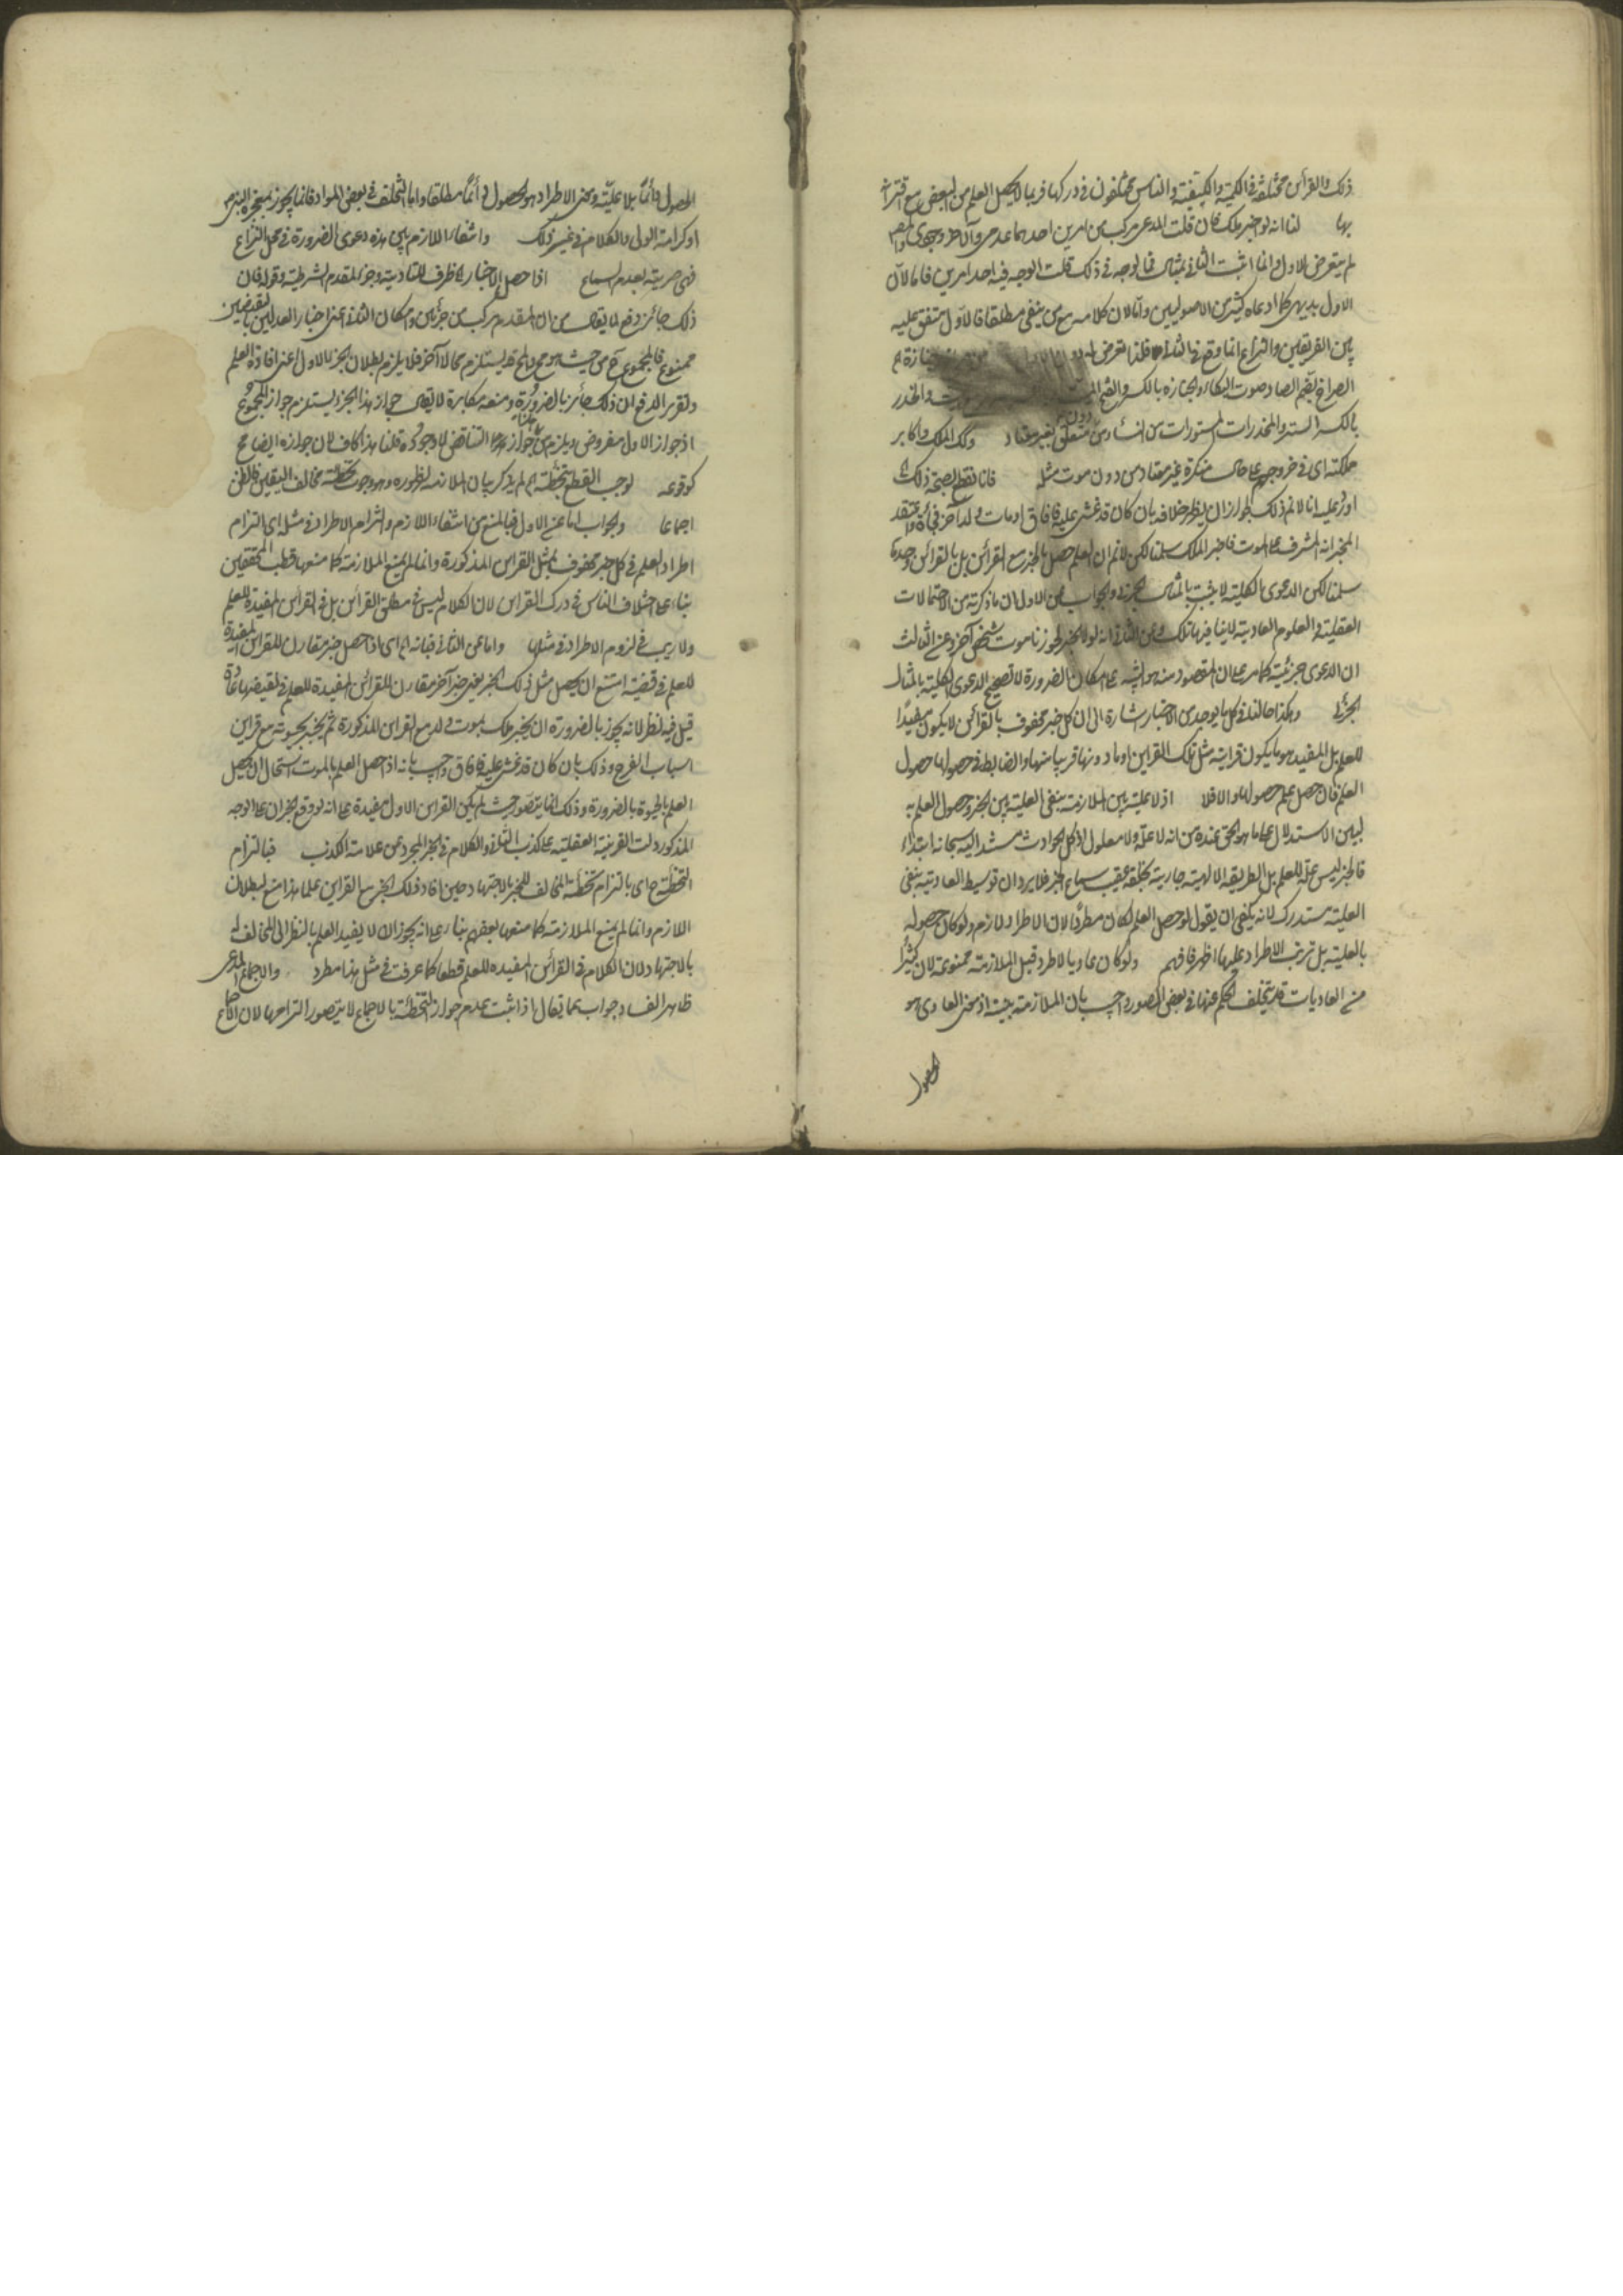 ذلك والقرائن مختلفة في الكمية والكيفية والناس مختلفون في دركها فربما لا يحصل العلم من البعض مع اقترانه
بها لنا انه لو اخبر ملك فان قلت المدعى مركب من امرين احدهما عدمى والآخر وجودى والمص
لم يتعرض للاول وانما اثبت الثانى بمثال فما الوجه في ذلك قلت الوجه فيه احد امرين فاما لان
الاول بديهى كما ادعاه كثير من الاصوليين واما لان كلامه مع من ينفى مطلقا فالاول متفق عليه
بين الفريقين والنزاع انما وقع في الثانى فلذا تعرض له
الصراخ بضم الصاد صوت البكاء والجنازة بالكسر والفتح الميت والخدر
بالكسر الستر والمخدرات المستورات من النساء دون متعلق بغير معتاد وكذا الملك واكابر
مملكته اى في خروجهم على حال منكرة غير معتاد من دون موت مثله فانا نقطع بصحة ذلك
اورد عليه انا لا نم ذلك لجواز ان يظهر خلافه بان كان قد غشى عليه فافاق او مات ولد آخر فجأة واعتقد
المخبر انه المشرف على الموت فاخبر الملك سلمنا لكن لا نم ان العلم حصل بالخبر مع القرائن بل بالقرائن وحدها
سلمنا لكن الدعوى الكلية لا يثبت بالمثال الجزئى والجواب عن الاول ان ما ذكرته من الاحتمالات
العقلية والعلوم العادية لا ينافيها تلك وعن الثانى انه لولا الخبر لجوزنا موت شخص آخر وعن الثالث
ان الدعوى جزئية كما مر على ان المقصود منه هو التنبيه على مكان الضرورة لا تصحيح الدعوى الكلية بالمثال
الجزئى وهكذا حالنا في كل ما يوجد من الاخبار اشارة الى ان كل خبر محفوف بالقرائن لا يكون مفيدا
للعلم بل المفيد هو ما يكون قرائنه مثل تلك القراين او ما دونها قريبا منها والضابط في حصولها حصول
العلم فان حصل علم حصولها والا فلا اذ لا علية بين الملازمة بنفى العلية بين الخبر وحصول العلم به
ليبين الاستدلال على ما هو الحق عنده من انه لا علة ولا معلول اذ كل الحوادث مستند اليه سبحانه ابتداء
فالخبر ليس علة للعلم بل الطريقة الالهية جارية بخلقه عقيب سماع الخبر فلا يرد ان توسيط العادية بنفى
العلية مستدرك لانه يكفى ان يقول لو حصل العلم لكان مطردا لان الاطراد لازم ولو كان حصوله
بالعلية بل ترتب الاطراد عليها اظهر فافهم ولو كان عاديا لاطرد قيل الملازمة ممنوعة لان كثيرا
من العاديات قد يتخلف الحكم عنها في بعض الصور واجيب بان الملازمة بينة اذ معنى العادى هو
الحصول
الحصول دائما بلا علية ومعنى الاطراد هو الحصول دائما مطلقا واما التخلف في بعض المواد فانما يجوز بمعجزة النبى
او كرامة الولى والكلام في غير ذلك وانتفاء اللازم بين هذه دعوى الضرورة في محل النزاع
فهى حرية بعدم السماع اذا حصل الاخبار ظرف للتأدية وجزء المقدم الشرطية وقوله فان
ذلك جائز دفع لما يقال من ان المقدم مركب من جزئين وامكان الثانى اعنى اخبار العدلين بالنقيضين
ممنوع فالمجموع من حيث هو مجموع يستلزم محالا آخر فلا يلزم بطلان الجزء الاول اعنى افادة العلم
وتقرير الدفع ان ذلك جائز بالضرورة ومنعه مكابرة لا يقال جواز هذا الجزء يستلزم جواز المجموع
اذ جواز الاول مفروض ويلزم من جوازهما التناقض لا وجوده قلنا هذا كاف لان جوازه ايضا مح
كوقوعه لوجب القطع بتخطئة الخ لم يذكر بيان الملازمة لظهوره وهو وجوب تخطئة مخالف اليقين فالظن
اجماعا والجواب اما عن الاول فبالمنع من انتفاء اللازم والتزام الاطراد في مثله اى التزام
اطراد العلم في كل خبر محفوف بمثل القراين المذكورة وانما لم يمنع الملازمة كما منعها قطب المحققين
بناء على اختلاف الناس في درك القراين لان الكلام ليس في مطلق القرائن بل في القرائن المفيدة للعلم
ولا ريب في لزوم الاطراد في مثلها واما عن الثانى فبانه الخ اى اذا حصل خبر مقارن للقراين المفيدة
للعلم في قضية امتنع ان يحصل مثل ذلك الخبر يعنى خبر آخر مقارن للقرائن المفيدة للعلم في نقيضها عادة
قيل فيه نظر لانه يجوز بالضرورة ان يخبر ملك بموت ولد مع القراين المذكورة ثم يخبر بحيوته مع قراين
اسباب الفرح وذلك بان كان قد غشى عليه فافاق واجيب بانه اذا حصل العلم بالموت استحال ان يحصل
العلم بالحيوة بالضرورة وذلك انما يتصور حيث لم يكن القراين الاول مفيدة على انه لو وقع الخبران على الوجه
المذكور دلت القرينة العقلية على كذب الثانى والكلام في الخبر المجرد عن علامة الكذب فبالتزام
التخطئة ح اى بالتزام تخطئة المخالف للخبر بالاجتهاد حين افاد ذلك الخبر مع القراين علما هذا منع لبطلان
اللازم وانما لم يمنع الملازمة كما منعها بعضهم بناء على انه يجوز ان لا يفيد العلم بالنظر الى المخالف له
بالاجتهاد لان الكلام في القرائن المفيدة للعلم قطعا كما عرفت في مثل هذا مطرد والاجماع المدعى
ظاهر الفساد جواب عما يقال اذا ثبت عدم جواز التخطئة بالاجماع لا يتصور التزامها لان الاجماع